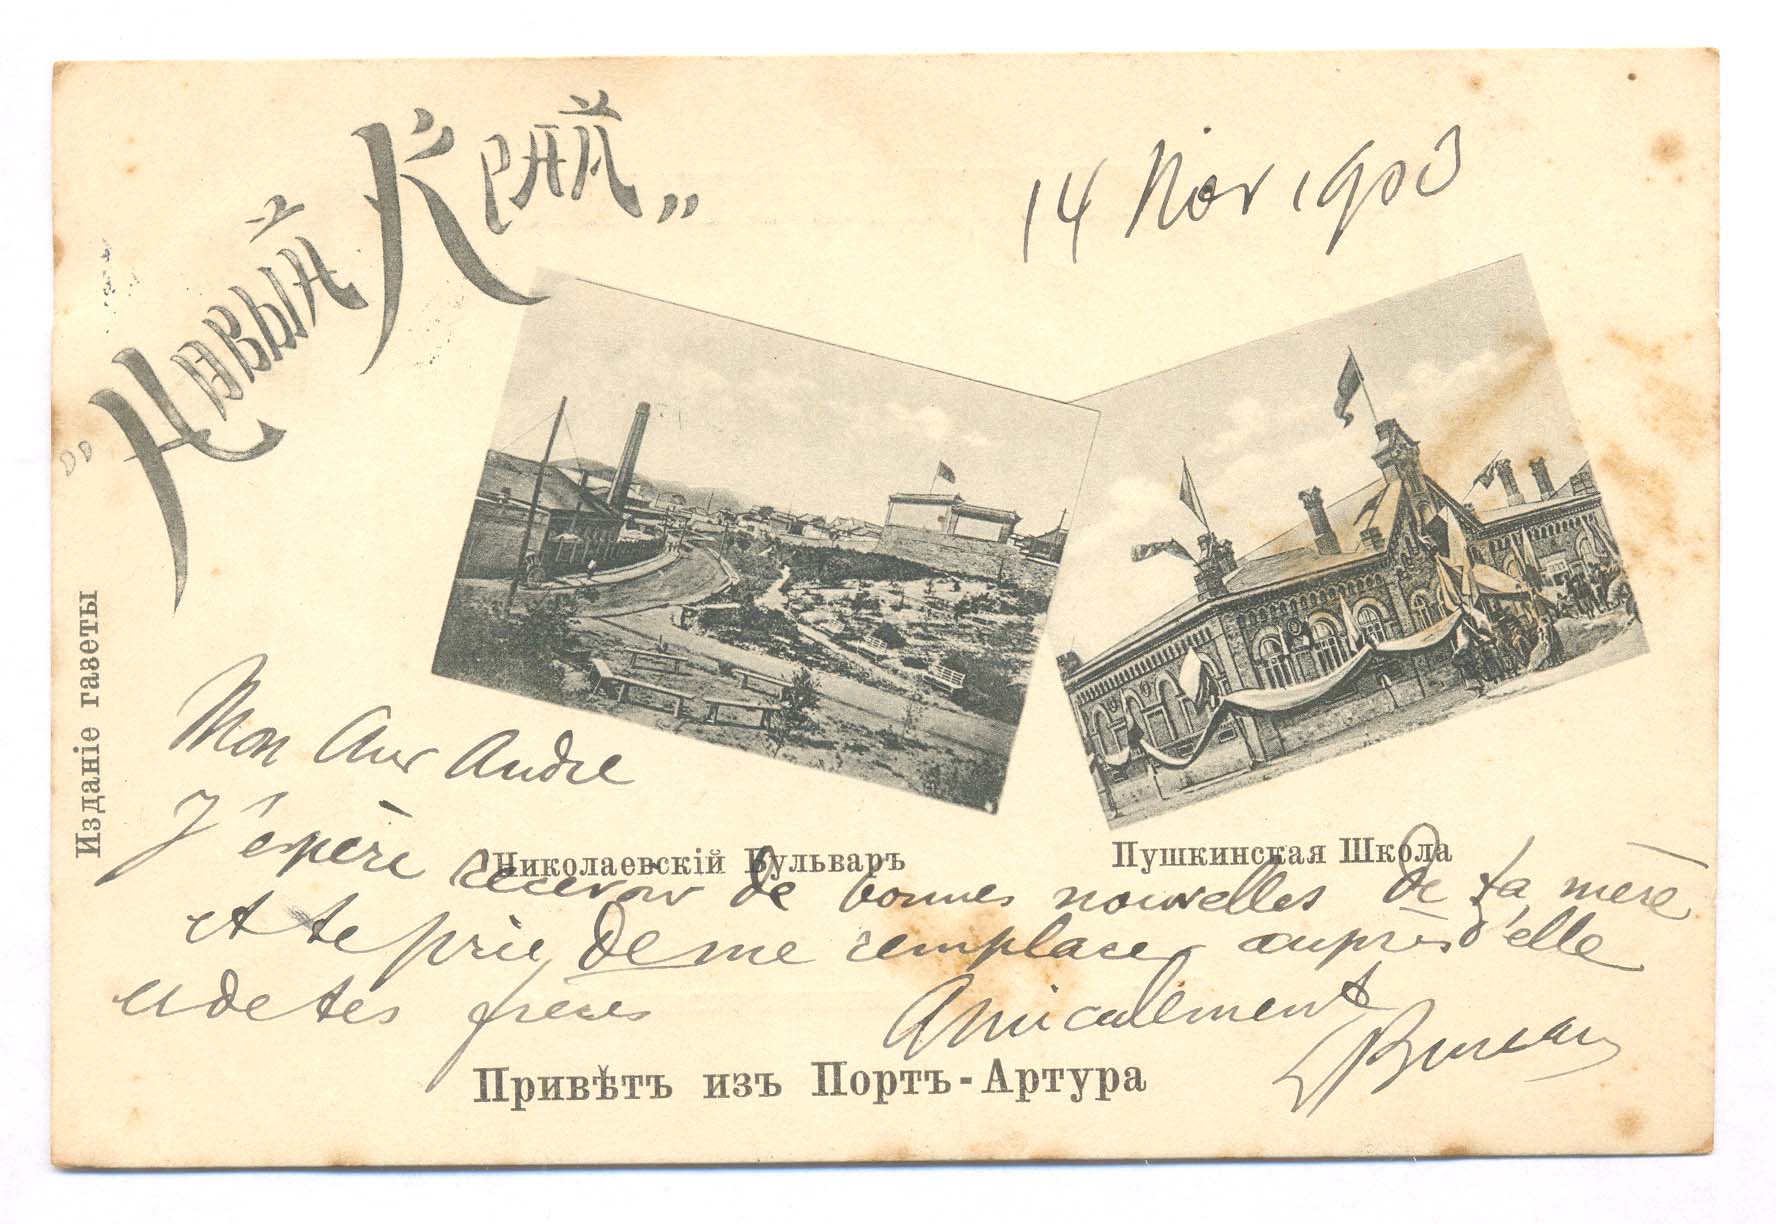 „Новый Край"
14 Nov 1903
Изданіе газеты
Mon cher André
J'espère recevoir de bonnes nouvelles de ta mère
Николаевскій Бульваръ
Пушкинская Школа
et te prie de me remplacer auprès d'elle
et de tes frères
Amicalement
Привѣтъ изъ Портъ-Артура